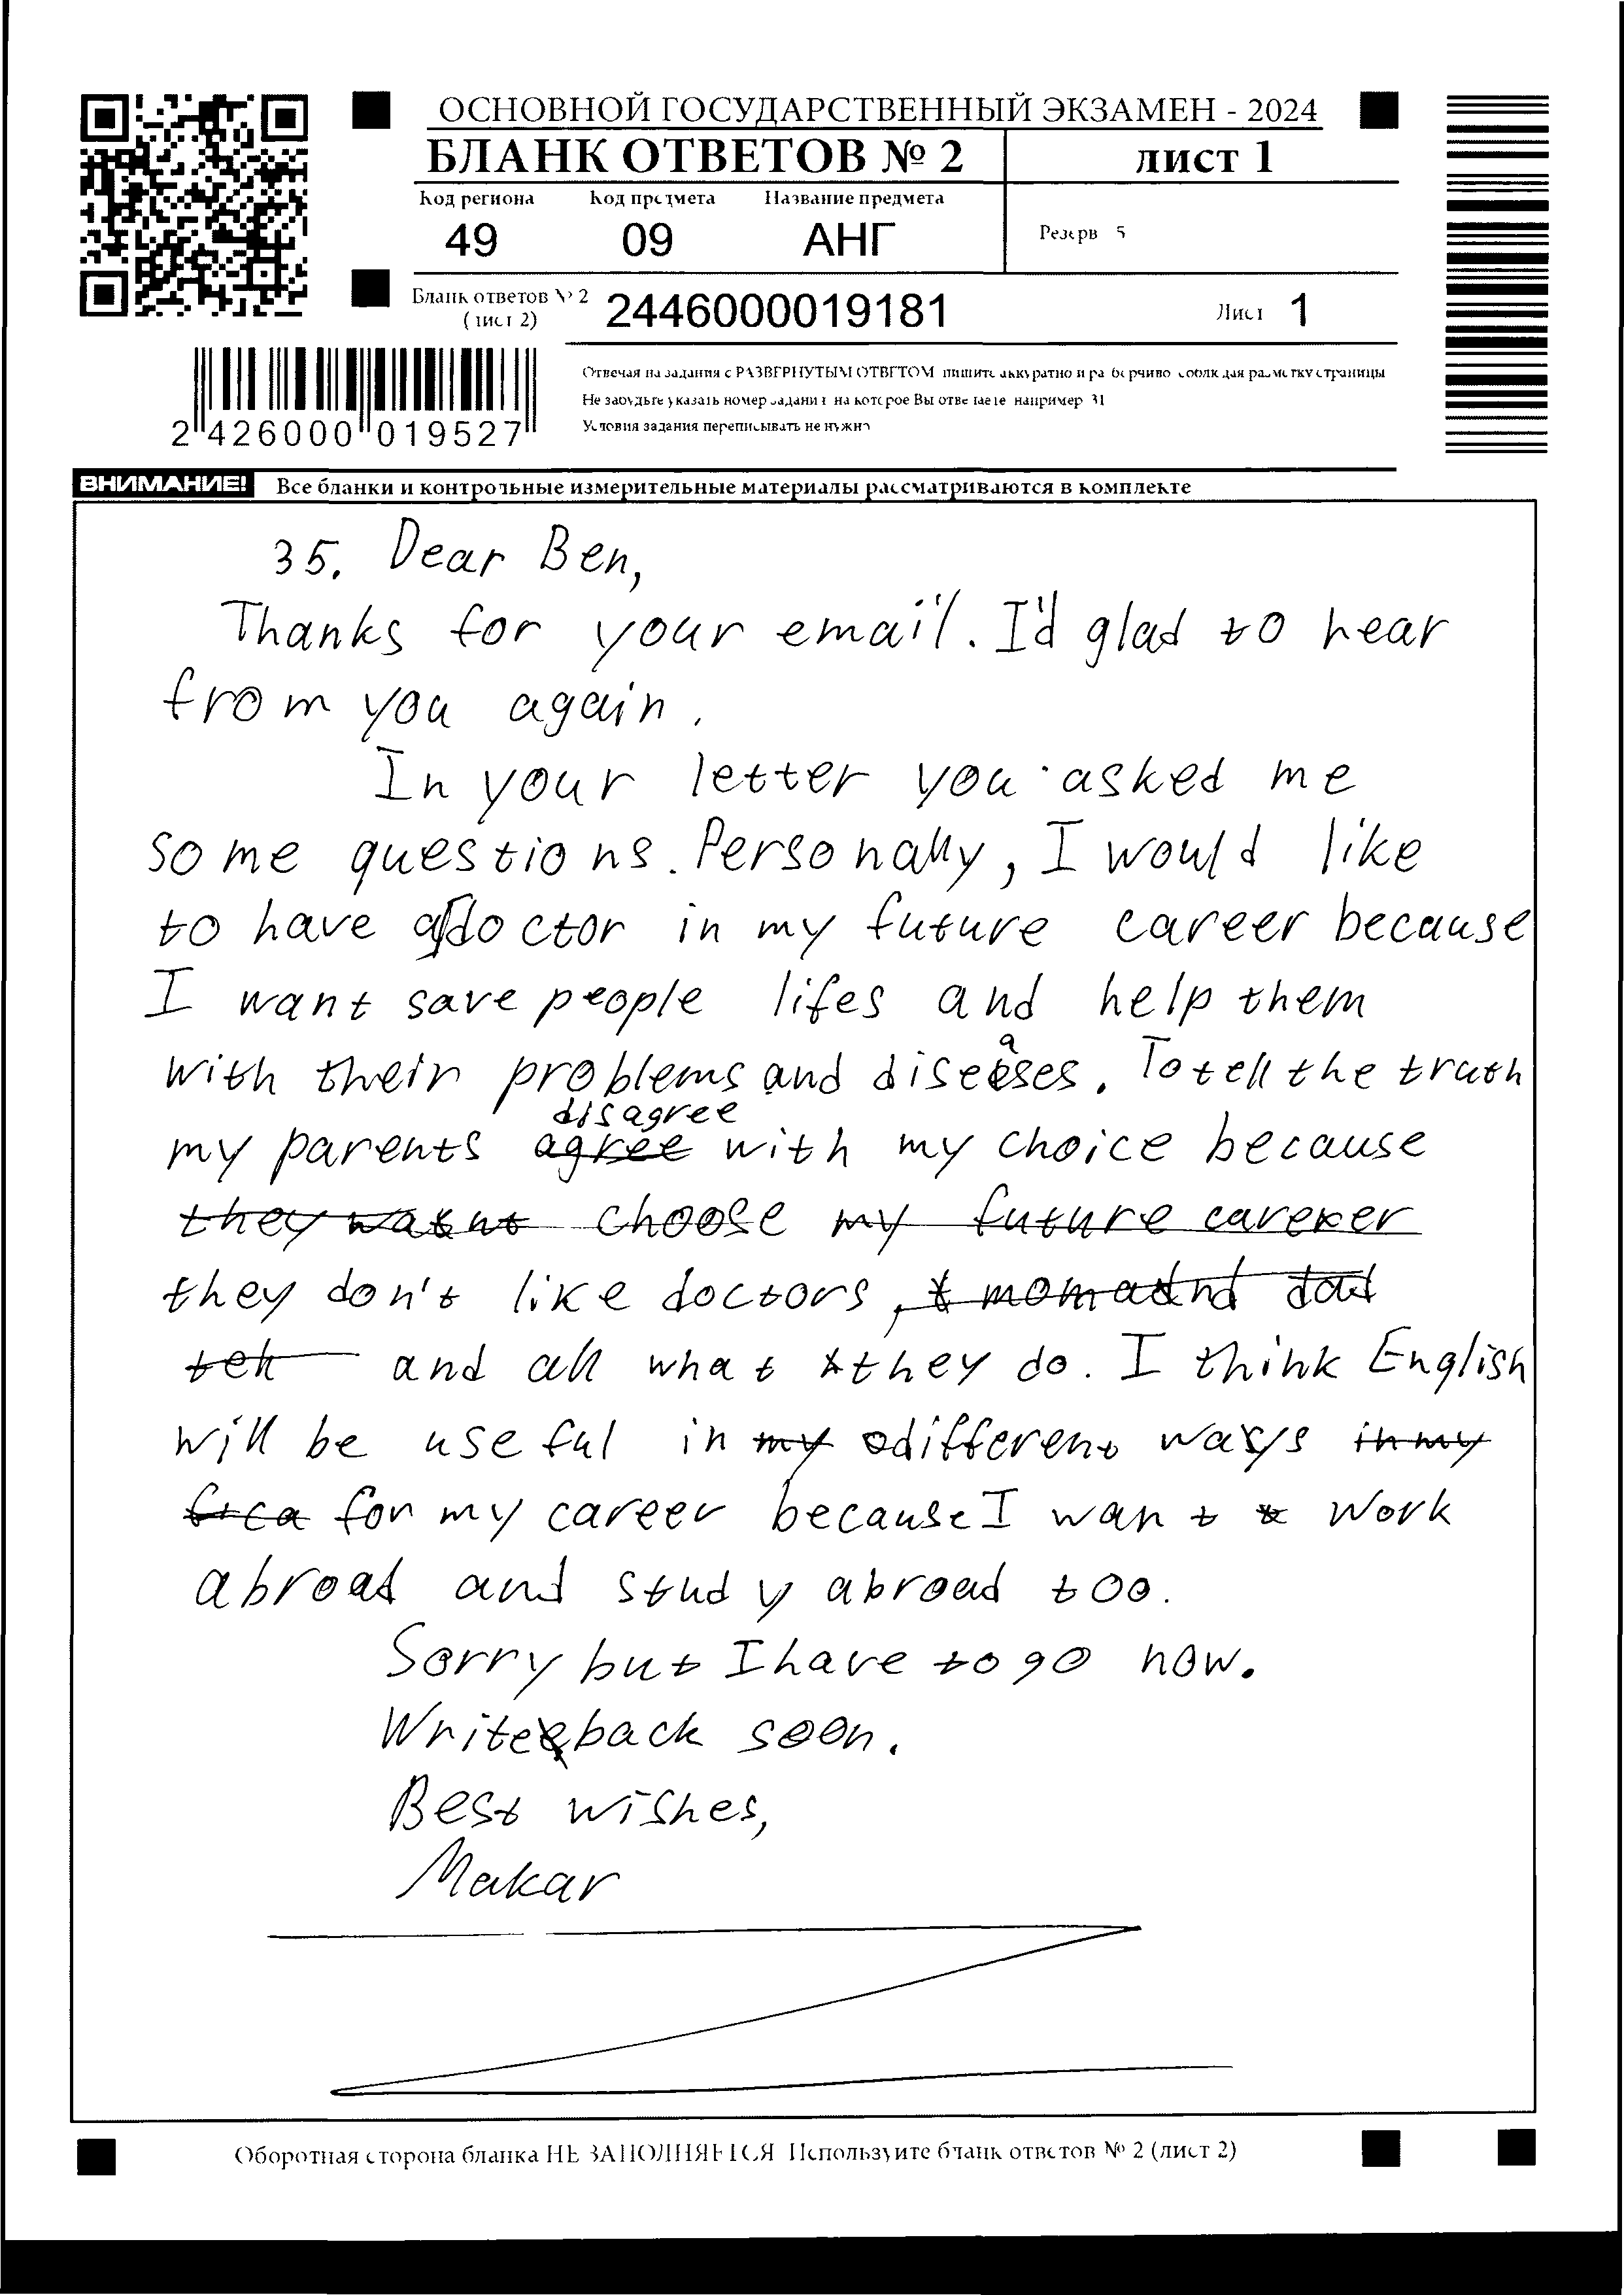 ОСНОВНОЙ ГОСУДАРСТВЕННЫЙ ЭКЗАМЕН - 2024
БЛАНК ОТВЕТОВ № 2
лист 1
Код региона Код предмета Название предмета
49 09 АНГ
Резерв 5
Бланк ответов № 2
(лист 2)
2446000019181
Лист 1
2 426000 019527
Отвечая на задания с РАЗВЕРНУТЫМ ОТВЕТОМ пишите аккуратно и разборчиво соблюдая разметку страницы
Не забудьте указать номер задания на которое Вы отвечаете например 31
Условия задания переписывать не нужно
ВНИМАНИЕ! Все бланки и контрольные измерительные материалы рассматриваются в комплекте
35. Dear Ben,
Thanks for your email. I'd glad to hear
from you again.
In your letter you asked me
some questions. Personally, I would like
to have a doctor in my future career because
I want save people lifes and help them
with their problems and diseases. To tell the truth
my parents disagree with my choice because
they don't like doctors,
and all what they do. I think English
will be useful in different ways
for my career because I want work
abroad and study abroad too.
Sorry but I have to go now.
Write back soon.
Best wishes,
Makar
Оборотная сторона бланка НЕ ЗАПОЛНЯЕТСЯ Используйте бланк ответов № 2 (лист 2)